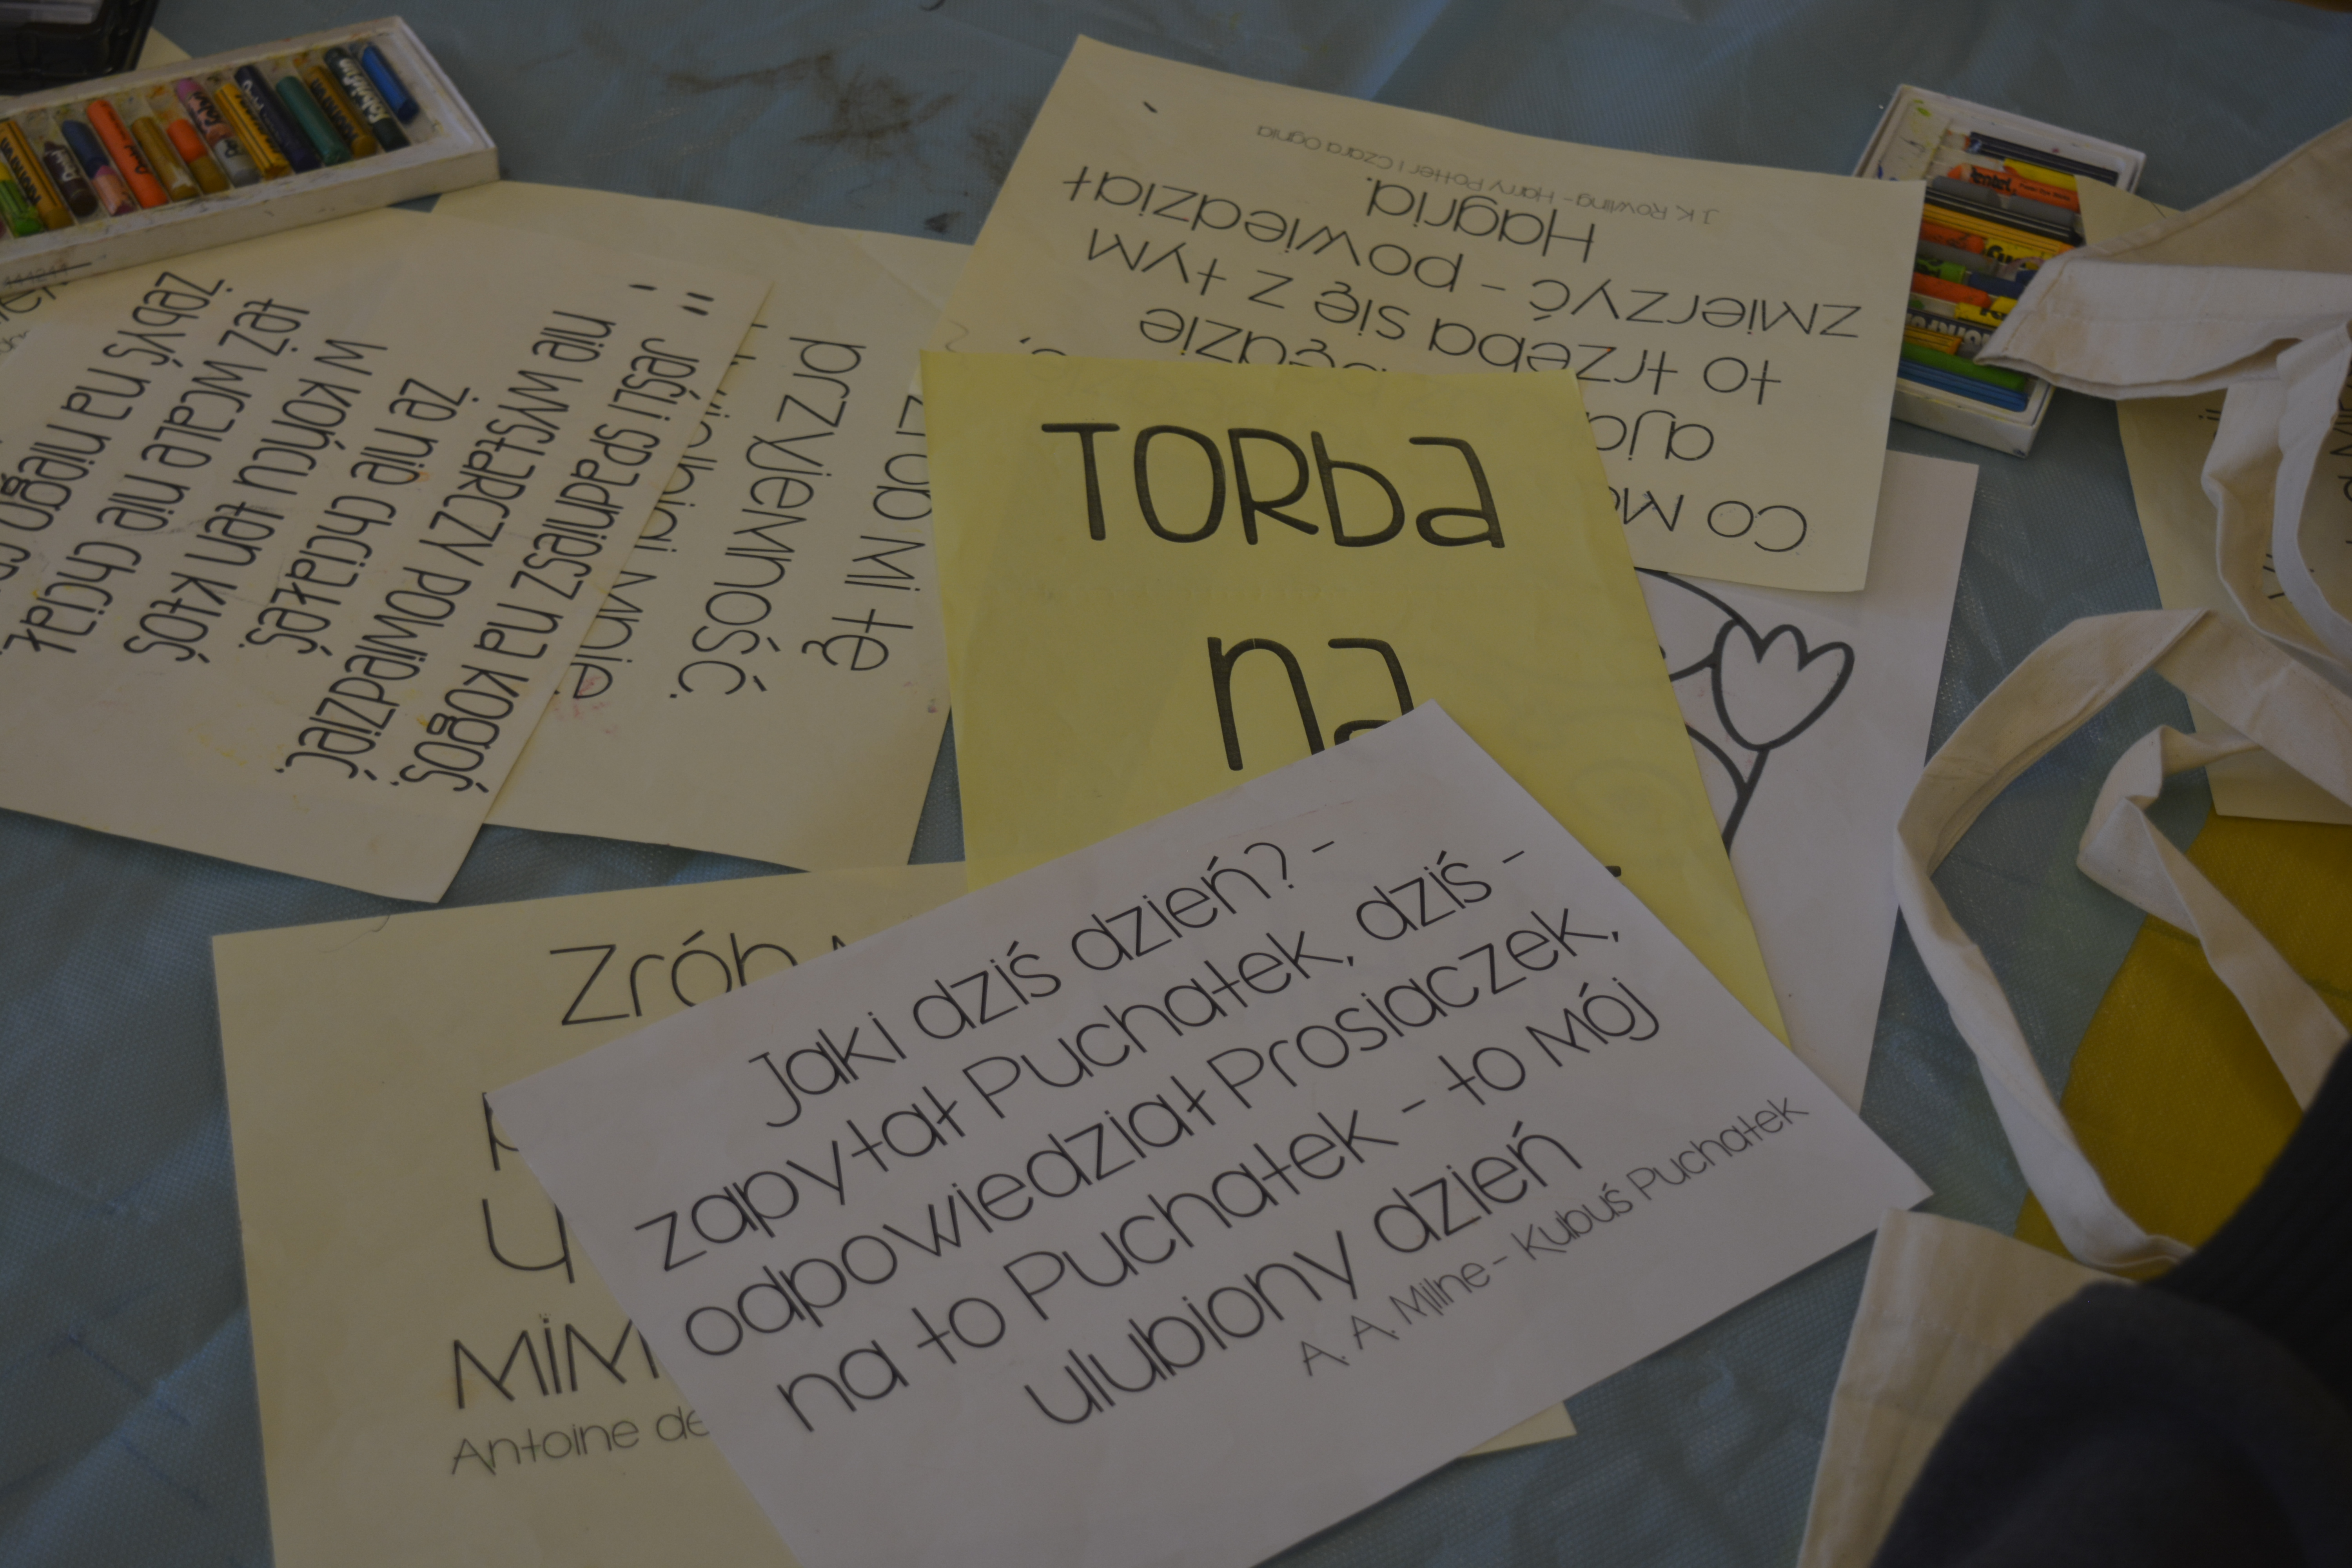 Jaki dziś dzień? -
zapytał Puchatek, dziś -
odpowiedział Prosiaczek,
na to Puchatek - to Mój
ulubiony dzień
A. A. Milne - Kubuś Puchatek
TORba
na
co
to trzeba się z tym
zmierzyć - powiedział
Hagrid.
J. K. Rowling - Harry Potter i Czara Ognia
zrób Mi tę
przyjemność.
Mnie.
Jeśli spadniesz na kogoś,
nie wystarczy powiedzieć,
że nie chciałeś.
W końcu ten ktoś
też wcale nie chciał,
żebyś na niego
Zrób
MiM
Antoine de